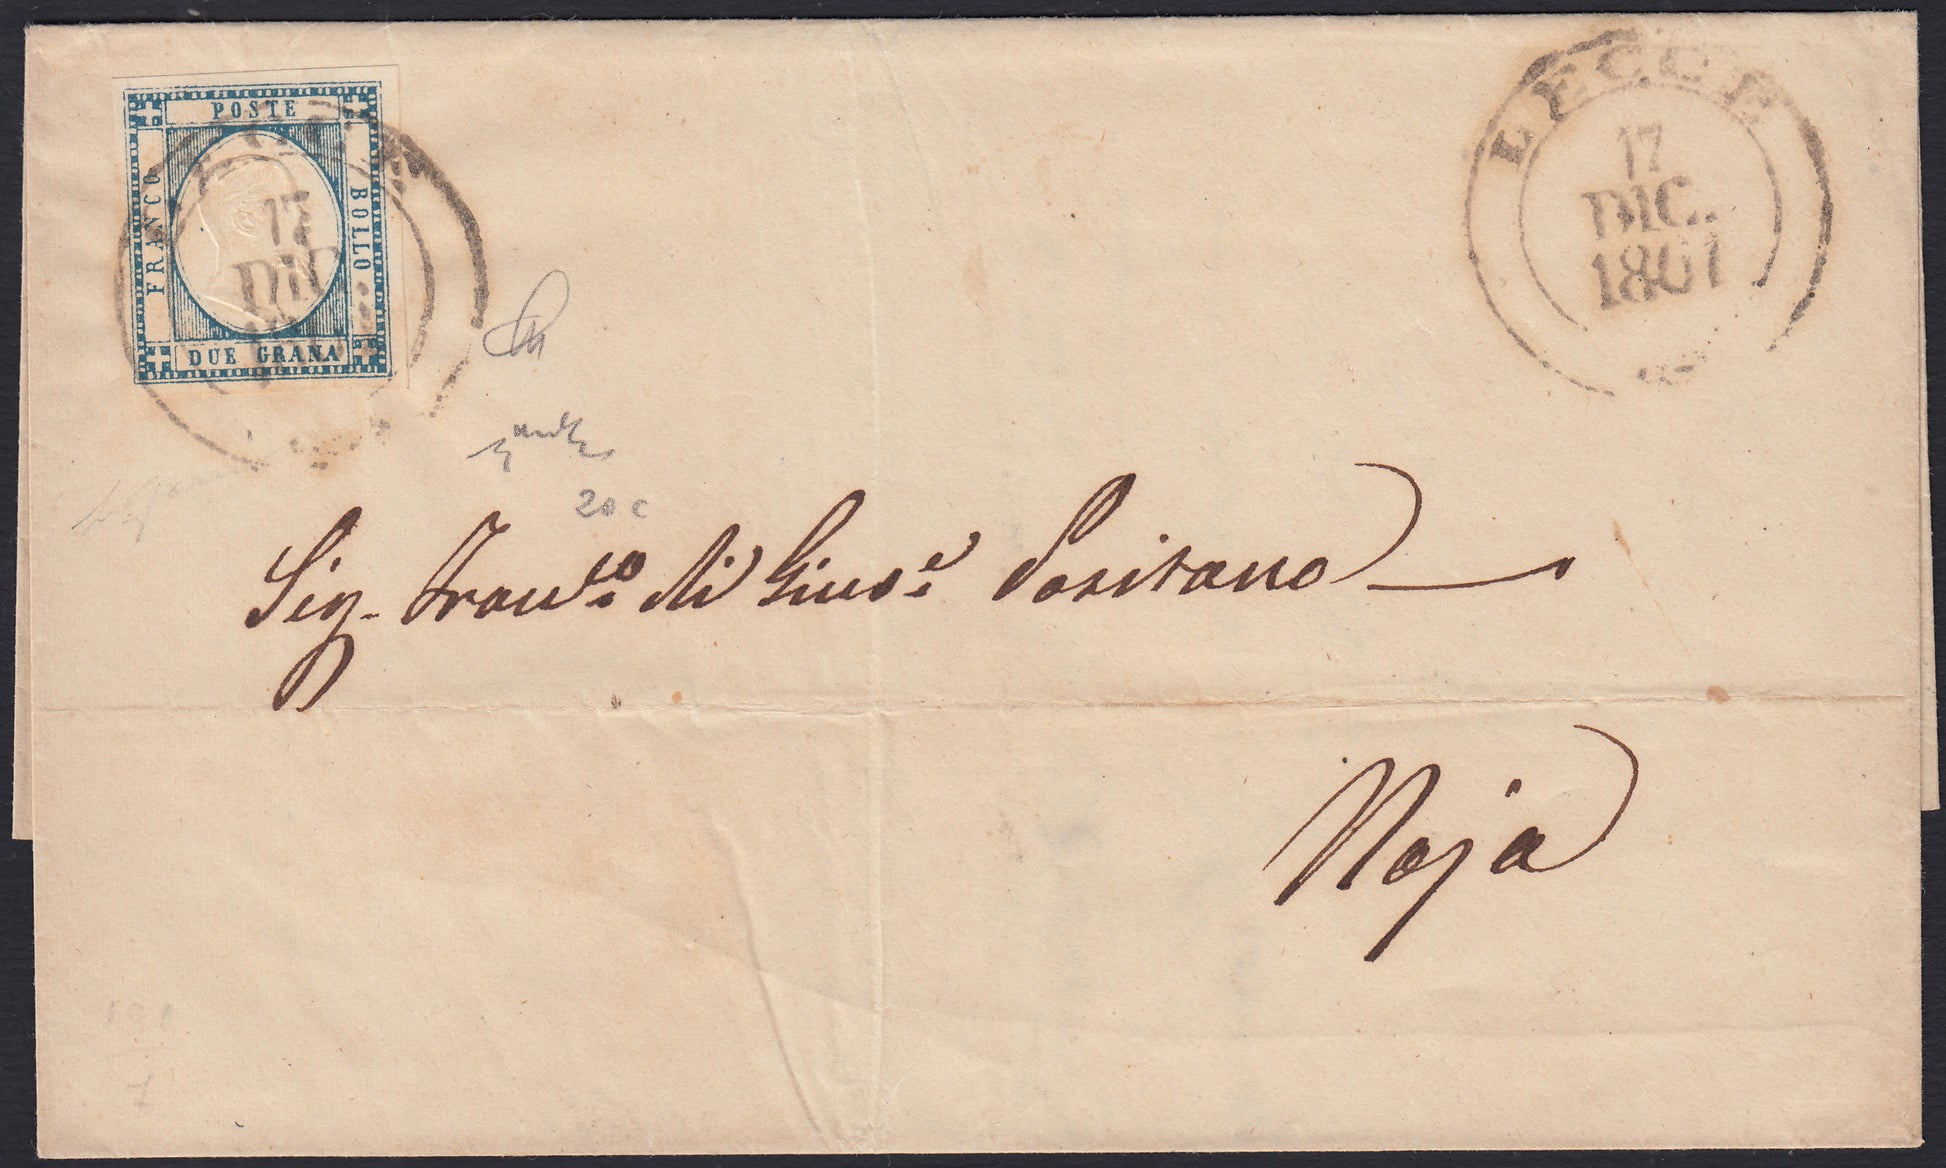 POSTE
FRANCO
BOLLO
DUE GRANA
17
DIC
LECCE
17
DIC.
1861
20 c
Sig. Franco di Giuse Positano
Noja